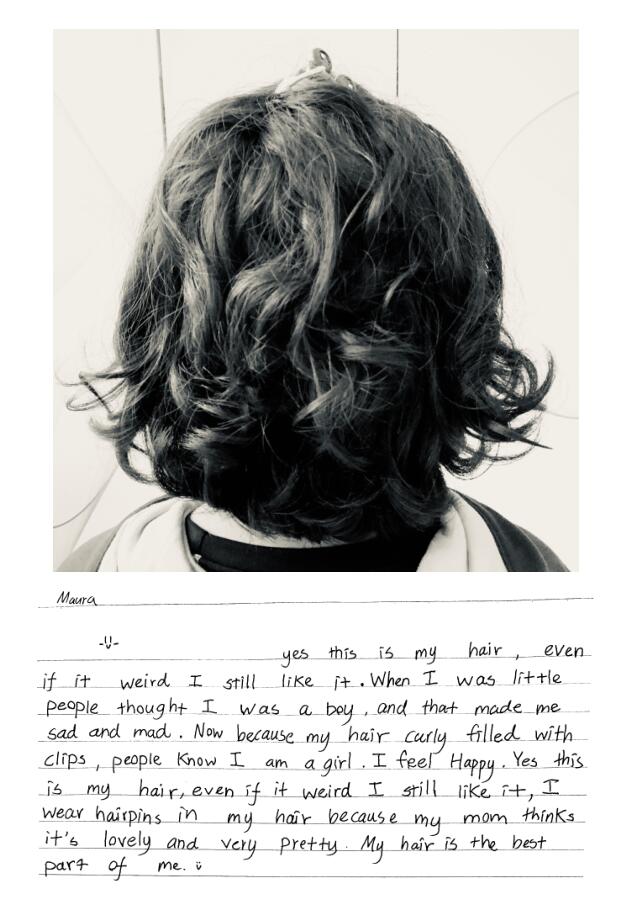 Maura
yes this is my hair, even
if it weird I still like it. When I was little
people thought I was a boy, and that made me
sad and mad. Now because my hair curly filled with
clips, people know I am a girl. I feel Happy. Yes this
is my hair, even if it weird I still like it, I
wear hairpins in my hair because my mom thinks
it's lovely and very pretty. My hair is the best
part of me.